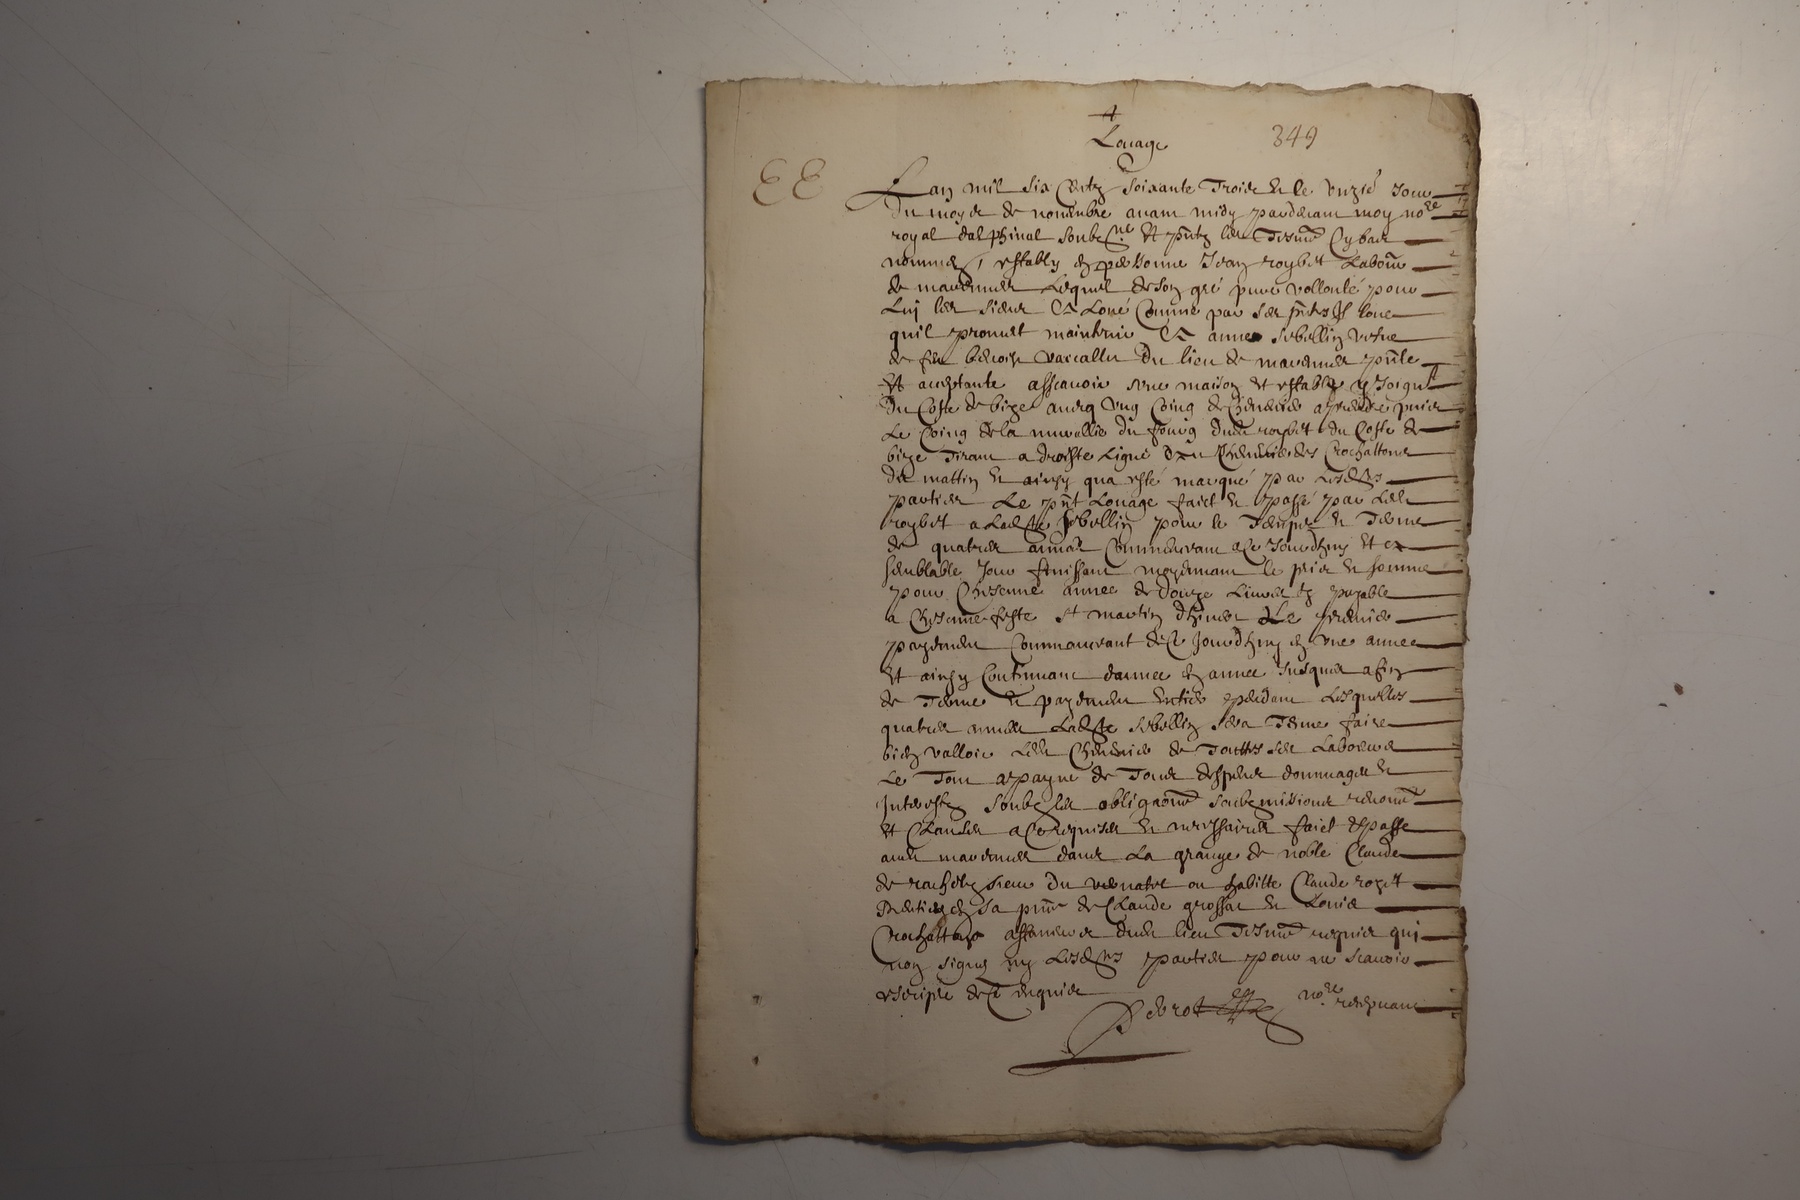 Louage
349
EE
Lan mil six centz soixante trois et le unzie jour
du moys de novembre avant midy pardevant moy no.re
royal dalphinal soubz.ne et pntz les tesm. cy bas
nommes, estably en personne Jean roybet labour
de mavennes lequel de son gré pure vollonté pour
luy les siens a Loué comme par ses pntes Il loue
quil promet maintenir a anne sebellin vefve
de feu benoist vaccallu du lieu de mavennes pnte
et aceptante assavoir une maison et estable y joignt
du coste de bize avecq ung coing de chenevier a prendre puis
Le coing de la muraillie du fourg dud roybet du coste de
bize tirant a droiste ligne au chenevier des Crochattons
du mattin et ainsy qua esté marqué par lesdtes
parties Le pnt Louage faict et passé par led
roybet a ladte sebellin pour le temps et terme
de quatres annes commencant a ce jourdhuy et a
semblable jour finissant moyenant le pris et somme
pour chesenne annee de douze livres tz payable
a chesenne feste st martin dhiver Le premier
payement commancant de ce jourdhuy en une annee
et ainsy continuant dannee en annee jusques a fin
de terme et payement entier pendant lesquelles
quatres annees ladte sebellin sera tenue faire
bien valloir led chenevier de touttes ses laboures
Le tout a payne de tous despens dommages et
Interestz soubz les obligaons soubzmissions renons
et clauses a ce requises et necessaires faict et passe
aud mavennes dans La grange de noble Claude
de rachetz sieur du vernatel ou habitte Claude royet
en sa pnce de Claude grossat et Louis
Crochatton dud lieu tesm. requis qui
non signe ny lesdtes parties pour ne scavoir
escripre de ce enquis
no.re recepvant